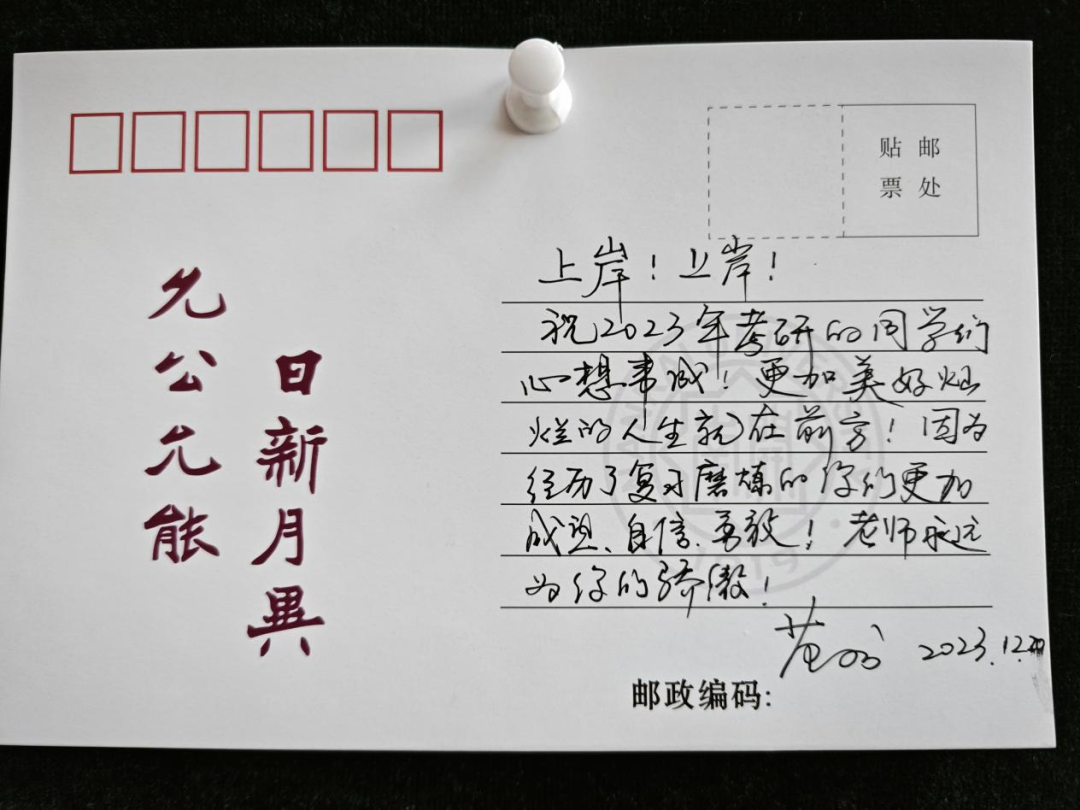 贴邮
票处
允公允能
日新月異
上岸！上岸！
祝2023年考研的同学们
心想事成！更加美好灿
烂的人生就在前方！因为
经历了复习磨炼的你们更加
成熟、自信、勇敢！老师永远
为你们骄傲！
2023.12.20
邮政编码: